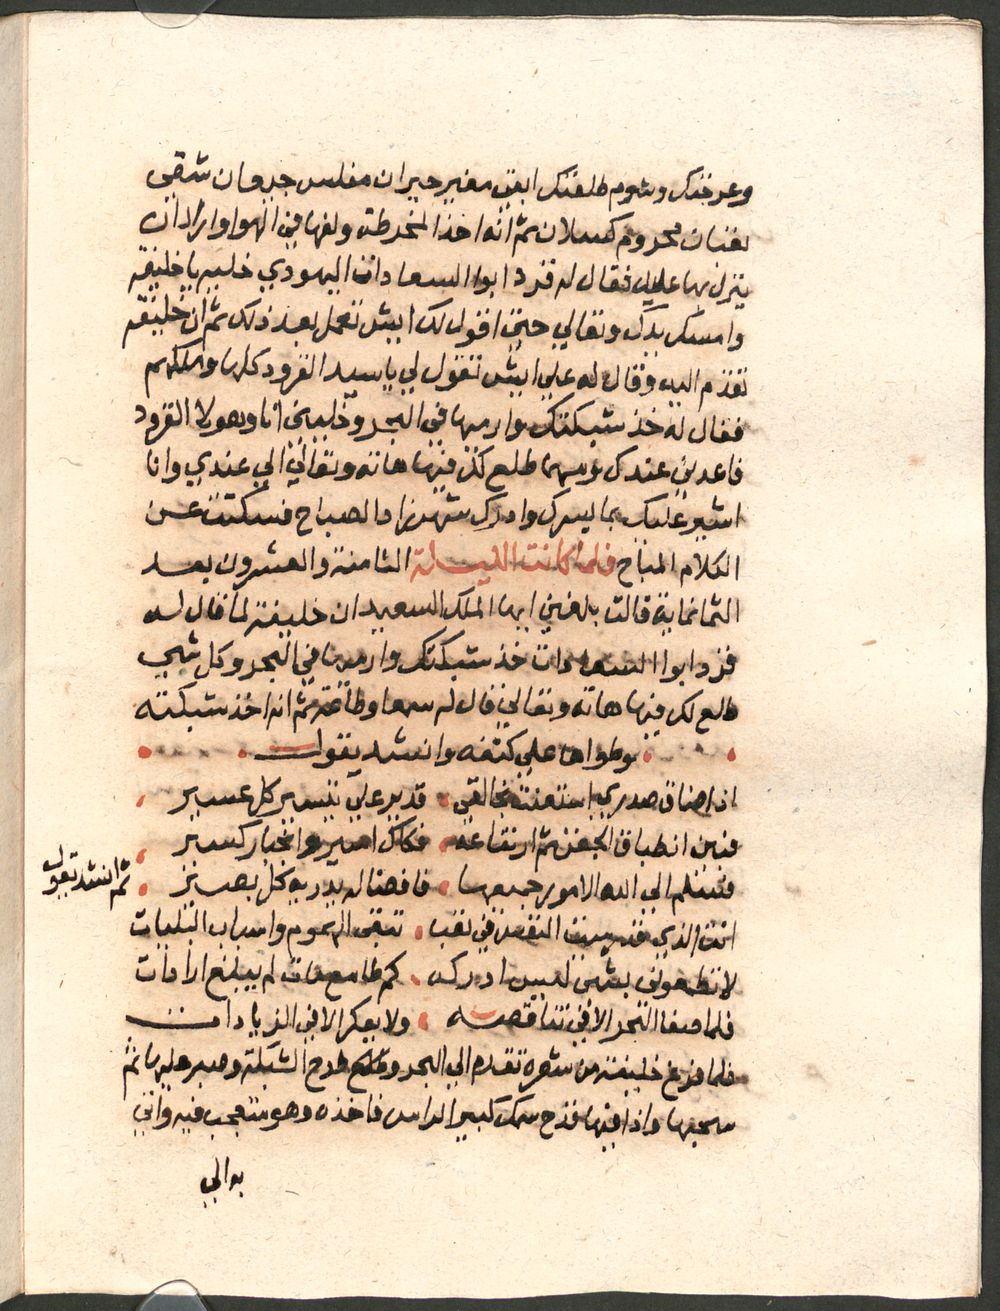 وعرجتك وشوم طلعتك ابقي مغير حيران مفلس جردمان شقي
نعسان محروم كسلان ثم انه اخذ المخرطة ولفها في الهوا واراد ان
ينزل بها عليه فقال له قرد ابوا السعادات اليهودي خليه يا خليفه
وامسك يدك وتعالي حتي اقول لك ايش تعمل بعد ذلك ثم ان خليفه
تقدم اليه وقال له علي ايش تقول لي يا سيد القرود كلها وملكهم
فقال له خذ شبكتك وارميها في البحر وخليني انا وهولا القرود
قاعدين عندك ومهما طلع لك فيها هاته وتعالي الي عندي وانا
اشير عليك بما يسرك وادرك شهرزاد الصباح فسكتت عن
الكلام المباح فلما كانت الليلة الثامنة والعشرون بعد
الثمانماية قالت بلغني ايها الملك السعيد ان خليفة لما قال له
قرد ابوا السعادات خذ شبكتك وارميها في البحر وكل شي
طلع لك فيها هاته وتعالي قال له سمعا وطاعة ثم انه اخذ شبكته
وطواها علي كتفه وانشد يقول
اذا ضاق صدري استعنت بخالقي قدير علي تيسير كل عسير
فبين انطباق الجفن ثم ارتفاعه فكاك اسير وانجبار كسير
فسلم الي الله الامور جميعها فافضاله يدريه كل بصير
ثم انشد يقول
انت الذي قد رميت النفس في تعب تنفي الهموم واسباب البليات
لا تطمعوني بشي لست ادركه كم طامع مات لم يبلغ ارادات
فلما صفا البحر الا في تناقصه ولا تعكر الا في الزيادات
فلما فرغ خليفة من شعره تقدم الي البحر وطرح الشبكة وصبر عليها ثم
سحبها واذا فيها فرخ سمك كبير الراس فاخذه وهو متعجب فيه واتي
به الي